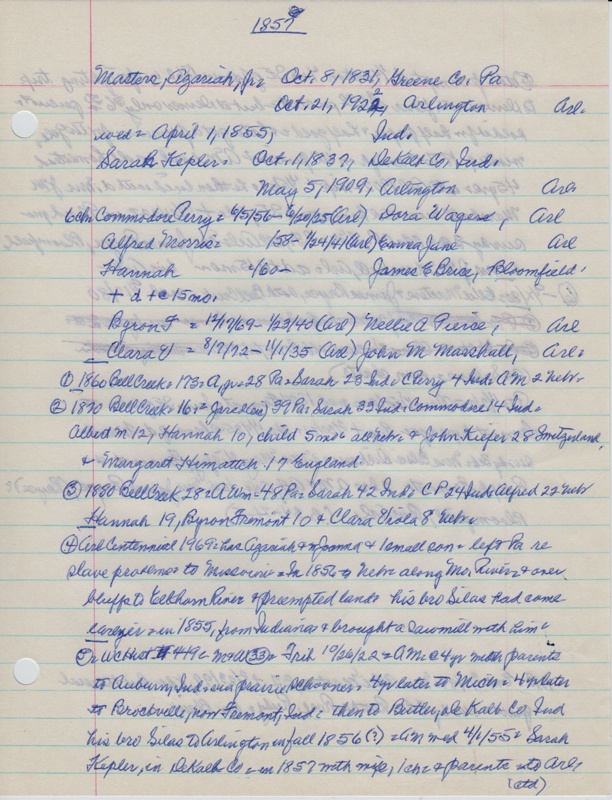 1857
Masters, Azariah, Jr= Oct. 8, 1831, Greene Co. Pa
Oct. 21, 1922, Arlington Arl.
wed= April 1, 1855, Ind.
Sarah Kepler= Oct. 1, 1837, DeKalb Co, Ind.
May 5, 1909, Arlington Arl
6 chn Commodore Perry= 6/5/56- 6/20/25 (Arl) Dora Wagers, Arl
Alfred Morris= /58- 1/24/41 (Arl) Emma Jane Arl
Hannah 2/60- James E Brise, Bloomfield.
+ d + @ 15 mo.
Byron F = 12/17/69- 1/23/40 (Arl) Nellie A Pierce, Arl
Clara V = 8/7/72- 11/1/35 (Arl) John M Marshall, Arl.
① 1860 Bell Creek= 173= A, jr= 28 Pa= Sarah 23 Ind= C Perry 4 Ind= A M 2 Nebr.
② 1870 Bell Creek= 16= 39 Pa= Sarah 33 Ind= Commodore 14 Ind=
Albert M 12, Hannah 10, child 5 mo= all Nebr= & John Kiefer 28 Switzerland,
& Margaret Himattch 17 England.
③ 1880 Bell Creek 28= A Wm- 48 Pa= Sarah 42 Ind= C P 24 Ind= Alfred 22 Nebr
Hannah 19, Byron Fremont 10 & Clara 8 Nebr.
④ Arl Centennial 1969= has Azariah & & 1 small son= left Pa re
slave problems to Missouri= In 1856 to Nebr along Mo. River & over
bluffs to Elkhorn River & preempted land= his bro Silas had come
earlier= in 1855, from Indiana & brought a sawmill with him=
⑤= WCHist 449= = Trib 10/26/22= AM @ 4 yr with parents
to Auburn, Ind= via prairie schooner= 4 yr later to Mich= 4 yr later
to Brockville, now Fremont, Ind= then to Butler, De Kalb Co. Ind
his bro Silas to Arlington in fall 1856 (?) = AM wed 4/1/55= Sarah
Kepler, in DeKalb Co= in 1857 with wife, 1 ch= & parents to Arl=
(ctd)